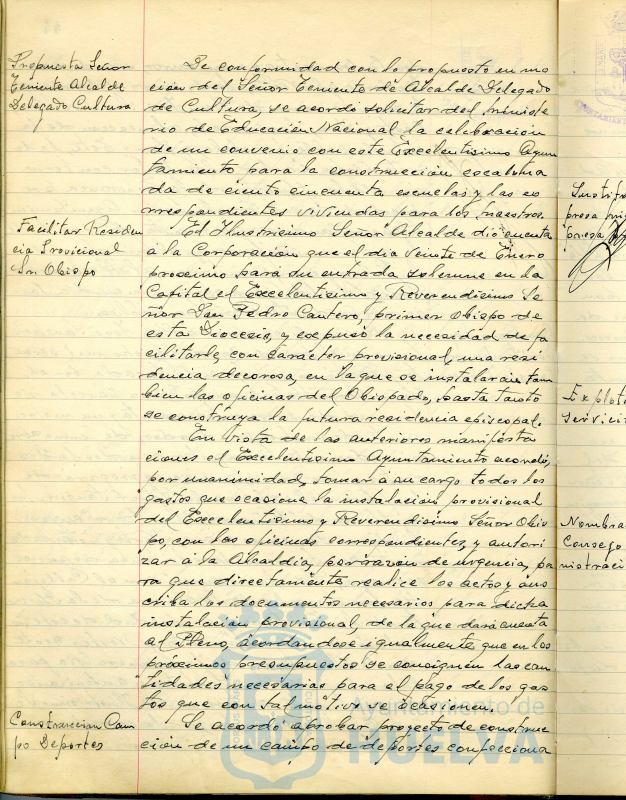 Propuesta Señor
Teniente Alcalde
Delegado Cultura
De conformidad con lo propuesto en mo
ción del Señor Teniente de Alcalde Delegado
de Cultura, se acordó solicitar del Ministe
rio de Educación Nacional la celebración
de un convenio con este Excelentísimo Ayun
tamiento para la construcción escalona
da de ciento cincuenta escuelas y las co
rrespondientes viviendas para los Maestros.
Facilitar Residen
cia Provicional
Sr. Obispo
El Ilustrísimo Señor Alcalde dió cuenta
á la Corporación que el dia veinte de Enero
proximo hará su entrada solemne en la
Capital el Excelentísimo y Reverendísimo Se
ñor Don Pedro Cantero, primer Obispo de
esta Diocesis, y expuso la necesidad de fa
cilitarle, con carácter provisional, una resi
dencia decorosa, en la que se instalarán tam
bien las oficinas del Obispado, hasta tanto
se construya la futura residencia episcopal.
En vista de las anteriores manifesta
ciones el Excelentísimo Ayuntamiento acordó,
por unanimidad, tomar á su cargo todos los
gastos que ocasione la instalación provisional
del Excelentísimo y Reverendísimo Señor Obis
po, con las oficinas correspondientes, y autori
zar á la Alcaldia, por razon de urgencia, pa
ra que directamente realice los actos y sus
criba los documentos necesarios para dicha
instalación provisional, de la que dará cuenta
al Pleno, acordandose igualmente que en los
próximos presupuestos se consignen las can
tidades necesarias para el pago de los gas
tos que con tal motivo se ocasionen.
Construccion Cam
po Deportes
Se acordó aprobar proyecto de construc
ción de un campo de deportes confecciona
Ayuntamiento de
HUELVA
Explota
Servici
Nombra
Consejo
nistraci